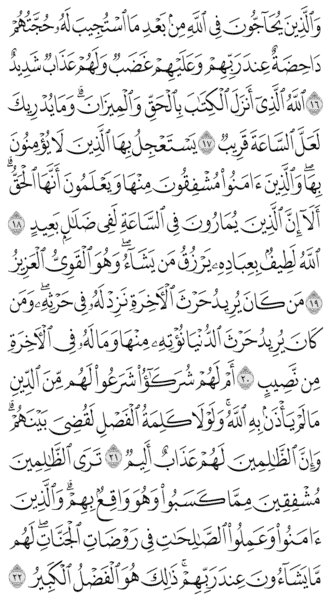 وَالَّذِينَ يُحَاجُّونَ فِي اللَّهِ مِنۢ بَعْدِ مَا اسْتُجِيبَ لَهُۥ حُجَّتُهُمْ
دَاحِضَةٌ عِندَ رَبِّهِمْ وَعَلَيْهِمْ غَضَبٌ وَلَهُمْ عَذَابٌ شَدِيدٌ
١٦ اللَّهُ الَّذِي أَنزَلَ الْكِتَٰبَ بِالْحَقِّ وَالْمِيزَانَ ۗ وَمَا يُدْرِيكَ
لَعَلَّ السَّاعَةَ قَرِيبٌ ١٧ يَسْتَعْجِلُ بِهَا الَّذِينَ لَا يُؤْمِنُونَ
بِهَا ۖ وَالَّذِينَ ءَامَنُوا مُشْفِقُونَ مِنْهَا وَيَعْلَمُونَ أَنَّهَا الْحَقُّ ۗ
أَلَا إِنَّ الَّذِينَ يُمَارُونَ فِي السَّاعَةِ لَفِي ضَلَٰلٍۭ بَعِيدٍ ١٨
اللَّهُ لَطِيفٌۢ بِعِبَادِهِۦ يَرْزُقُ مَن يَشَآءُ ۖ وَهُوَ الْقَوِيُّ الْعَزِيزُ
١٩ مَن كَانَ يُرِيدُ حَرْثَ الْءَاخِرَةِ نَزِدْ لَهُۥ فِي حَرْثِهِۦ ۖ وَمَن
كَانَ يُرِيدُ حَرْثَ الدُّنْيَا نُؤْتِهِۦ مِنْهَا وَمَا لَهُۥ فِي الْءَاخِرَةِ
مِن نَّصِيبٍ ٢٠ أَمْ لَهُمْ شُرَكَٰٓؤُا شَرَعُوا لَهُم مِّنَ الدِّينِ
مَا لَمْ يَأْذَنۢ بِهِ اللَّهُ ۚ وَلَوْلَا كَلِمَةُ الْفَصْلِ لَقُضِيَ بَيْنَهُمْ ۗ
وَإِنَّ الظَّٰلِمِينَ لَهُمْ عَذَابٌ أَلِيمٌ ٢١ تَرَى الظَّٰلِمِينَ
مُشْفِقِينَ مِمَّا كَسَبُوا وَهُوَ وَاقِعٌۢ بِهِمْ ۗ وَالَّذِينَ
ءَامَنُوا وَعَمِلُوا الصَّٰلِحَٰتِ فِي رَوْضَاتِ الْجَنَّاتِ ۖ لَهُم
مَّا يَشَآءُونَ عِندَ رَبِّهِمْ ۚ ذَٰلِكَ هُوَ الْفَضْلُ الْكَبِيرُ ٢٢